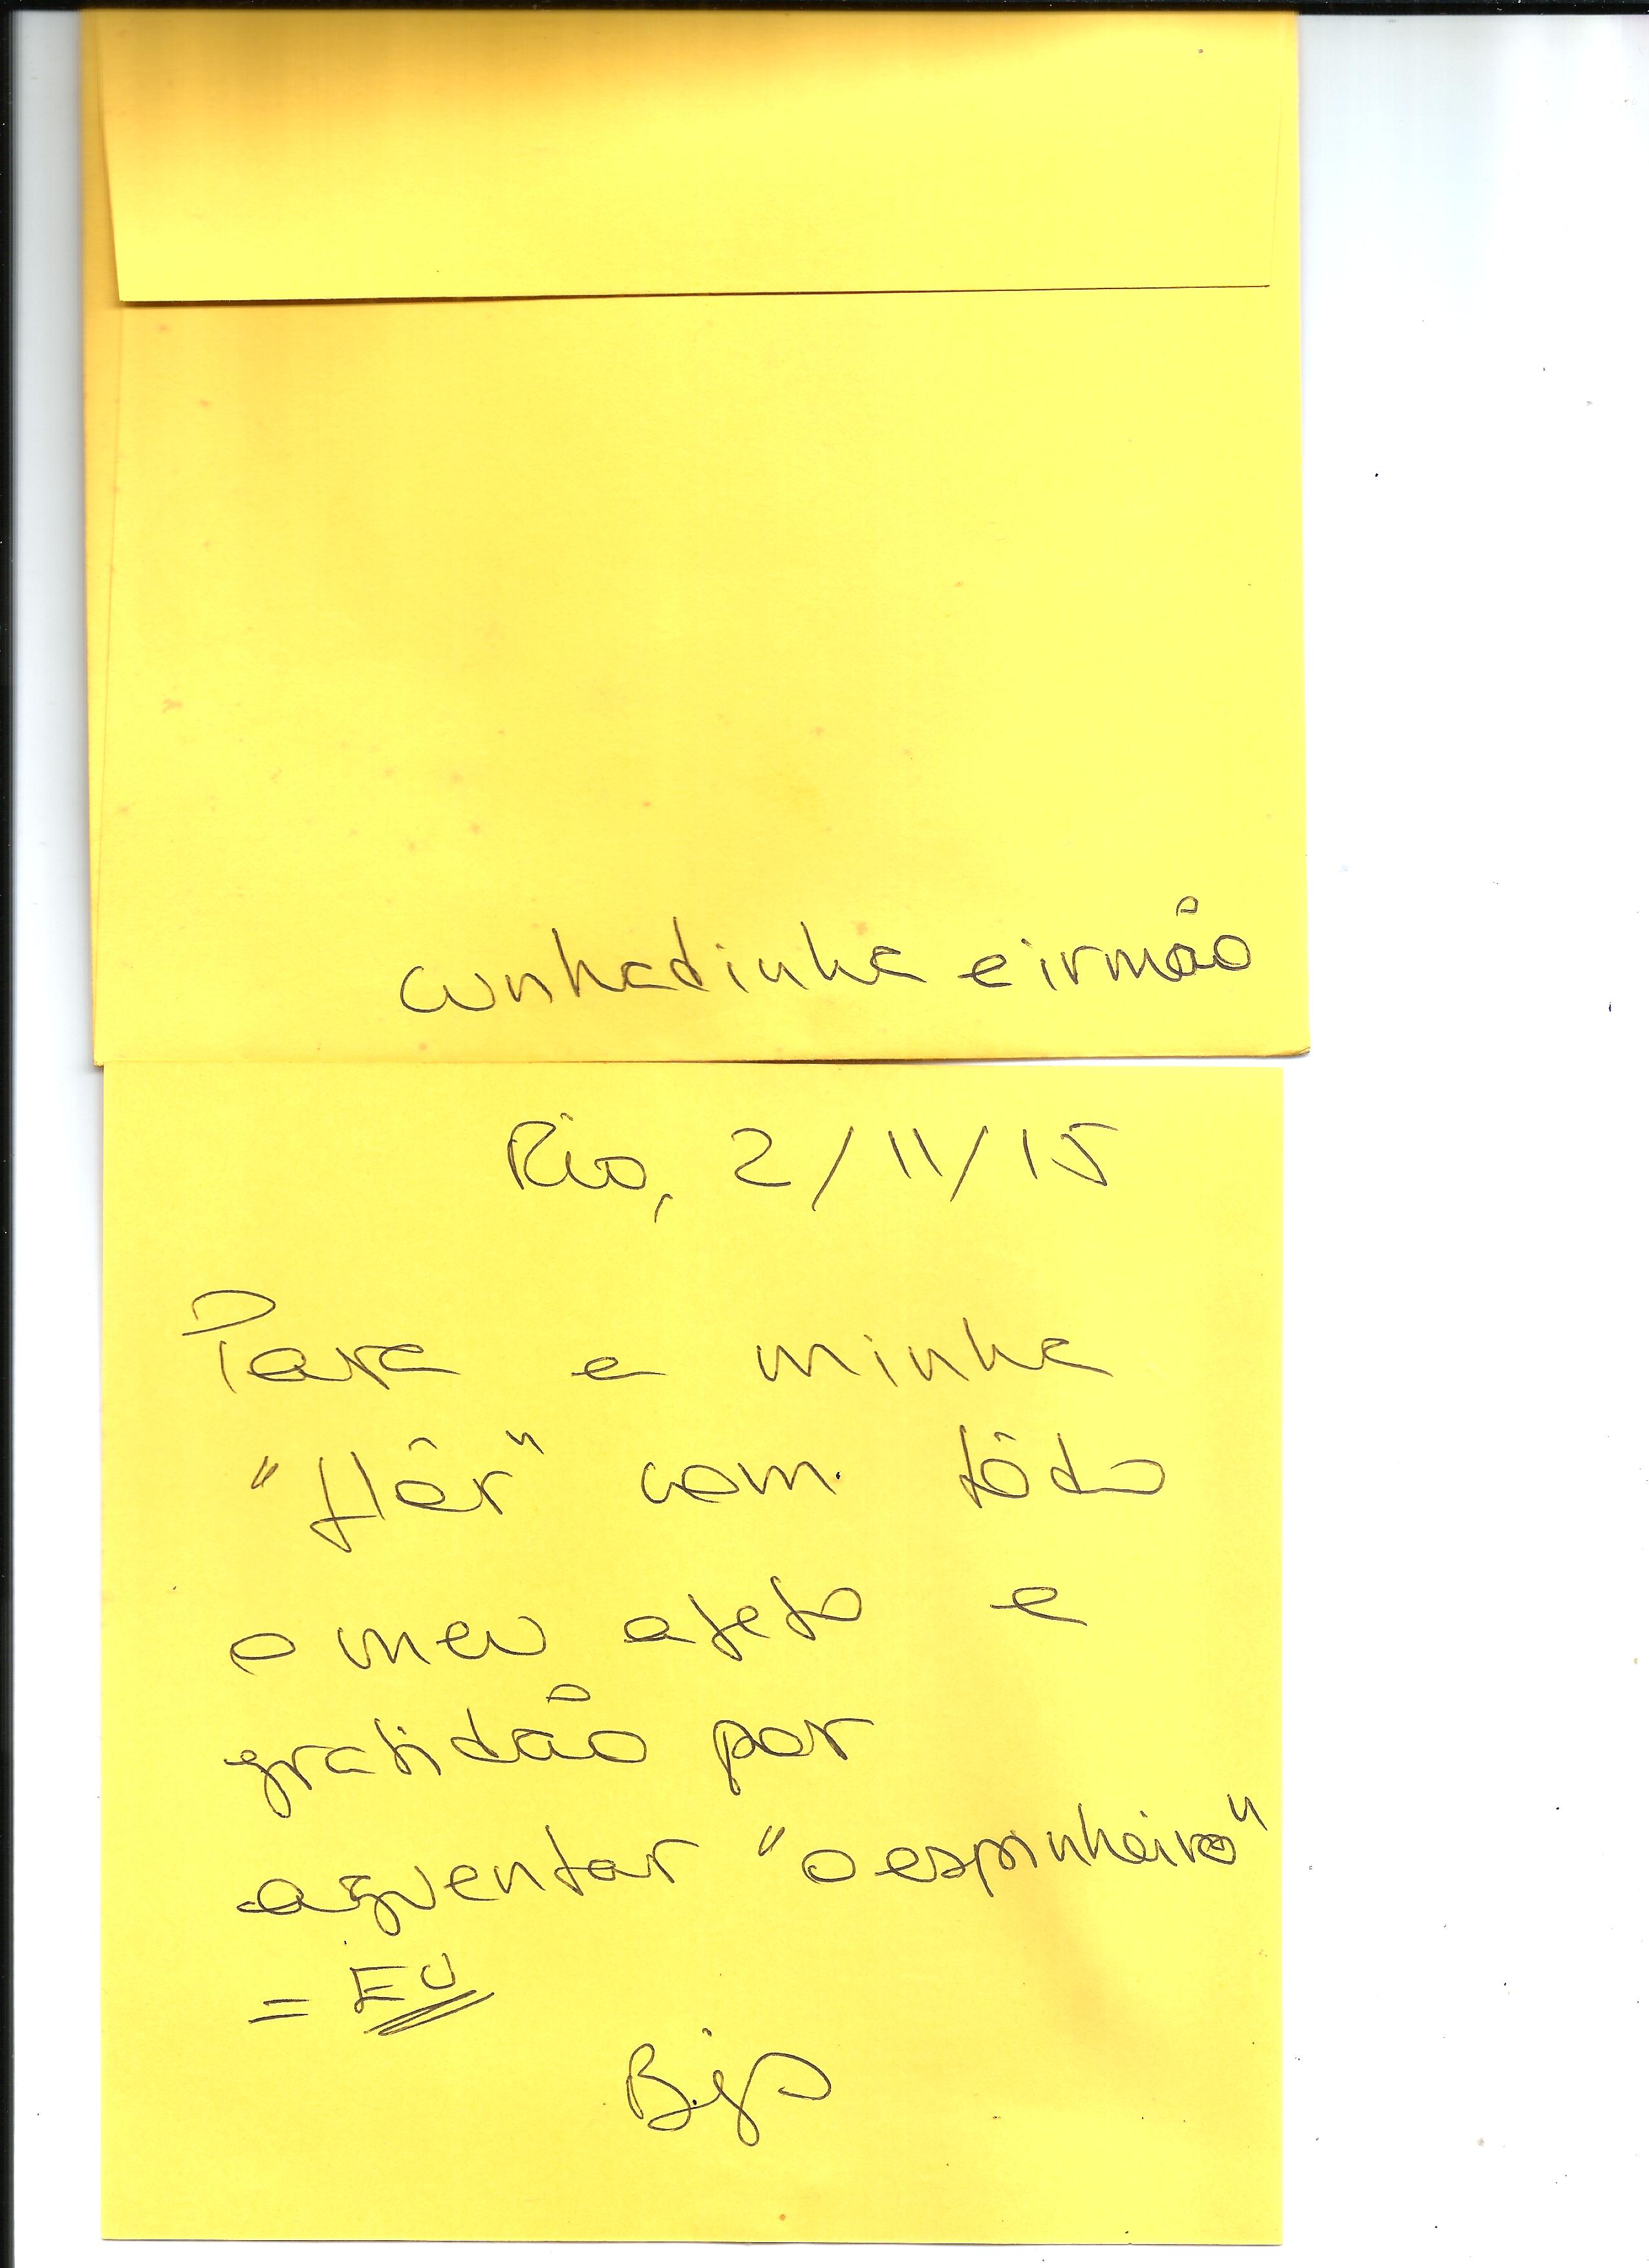 cunhadinha e irmão
Rio, 2/11/15
Para a minha
"flôr" com tôdo
o meu afeto e
gratidão por
aguentar "o espinheiro"
= EU
Bjs